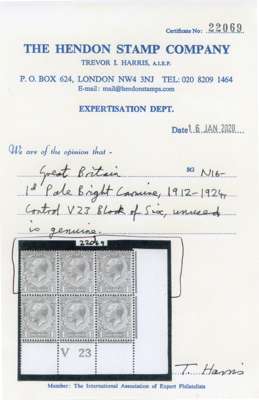 Certificate No: 22069
THE HENDON STAMP COMPANY
TREVOR I. HARRIS, A.I.E.P.
P. O. BOX 624, LONDON NW4 3NJ TEL: 020 8209 1464
E-mail: mail@hendonstamps.com
EXPERTISATION DEPT.
Date 16 JAN 2020
We are of the opinion that -
Great Britain SG N16
1d Pale Bright Carmine, 1912-1924,
Control V23 Block of Six, unused
is genuine.
22069
V 23
T. Harris
Member: The International Association of Expert Philatelists